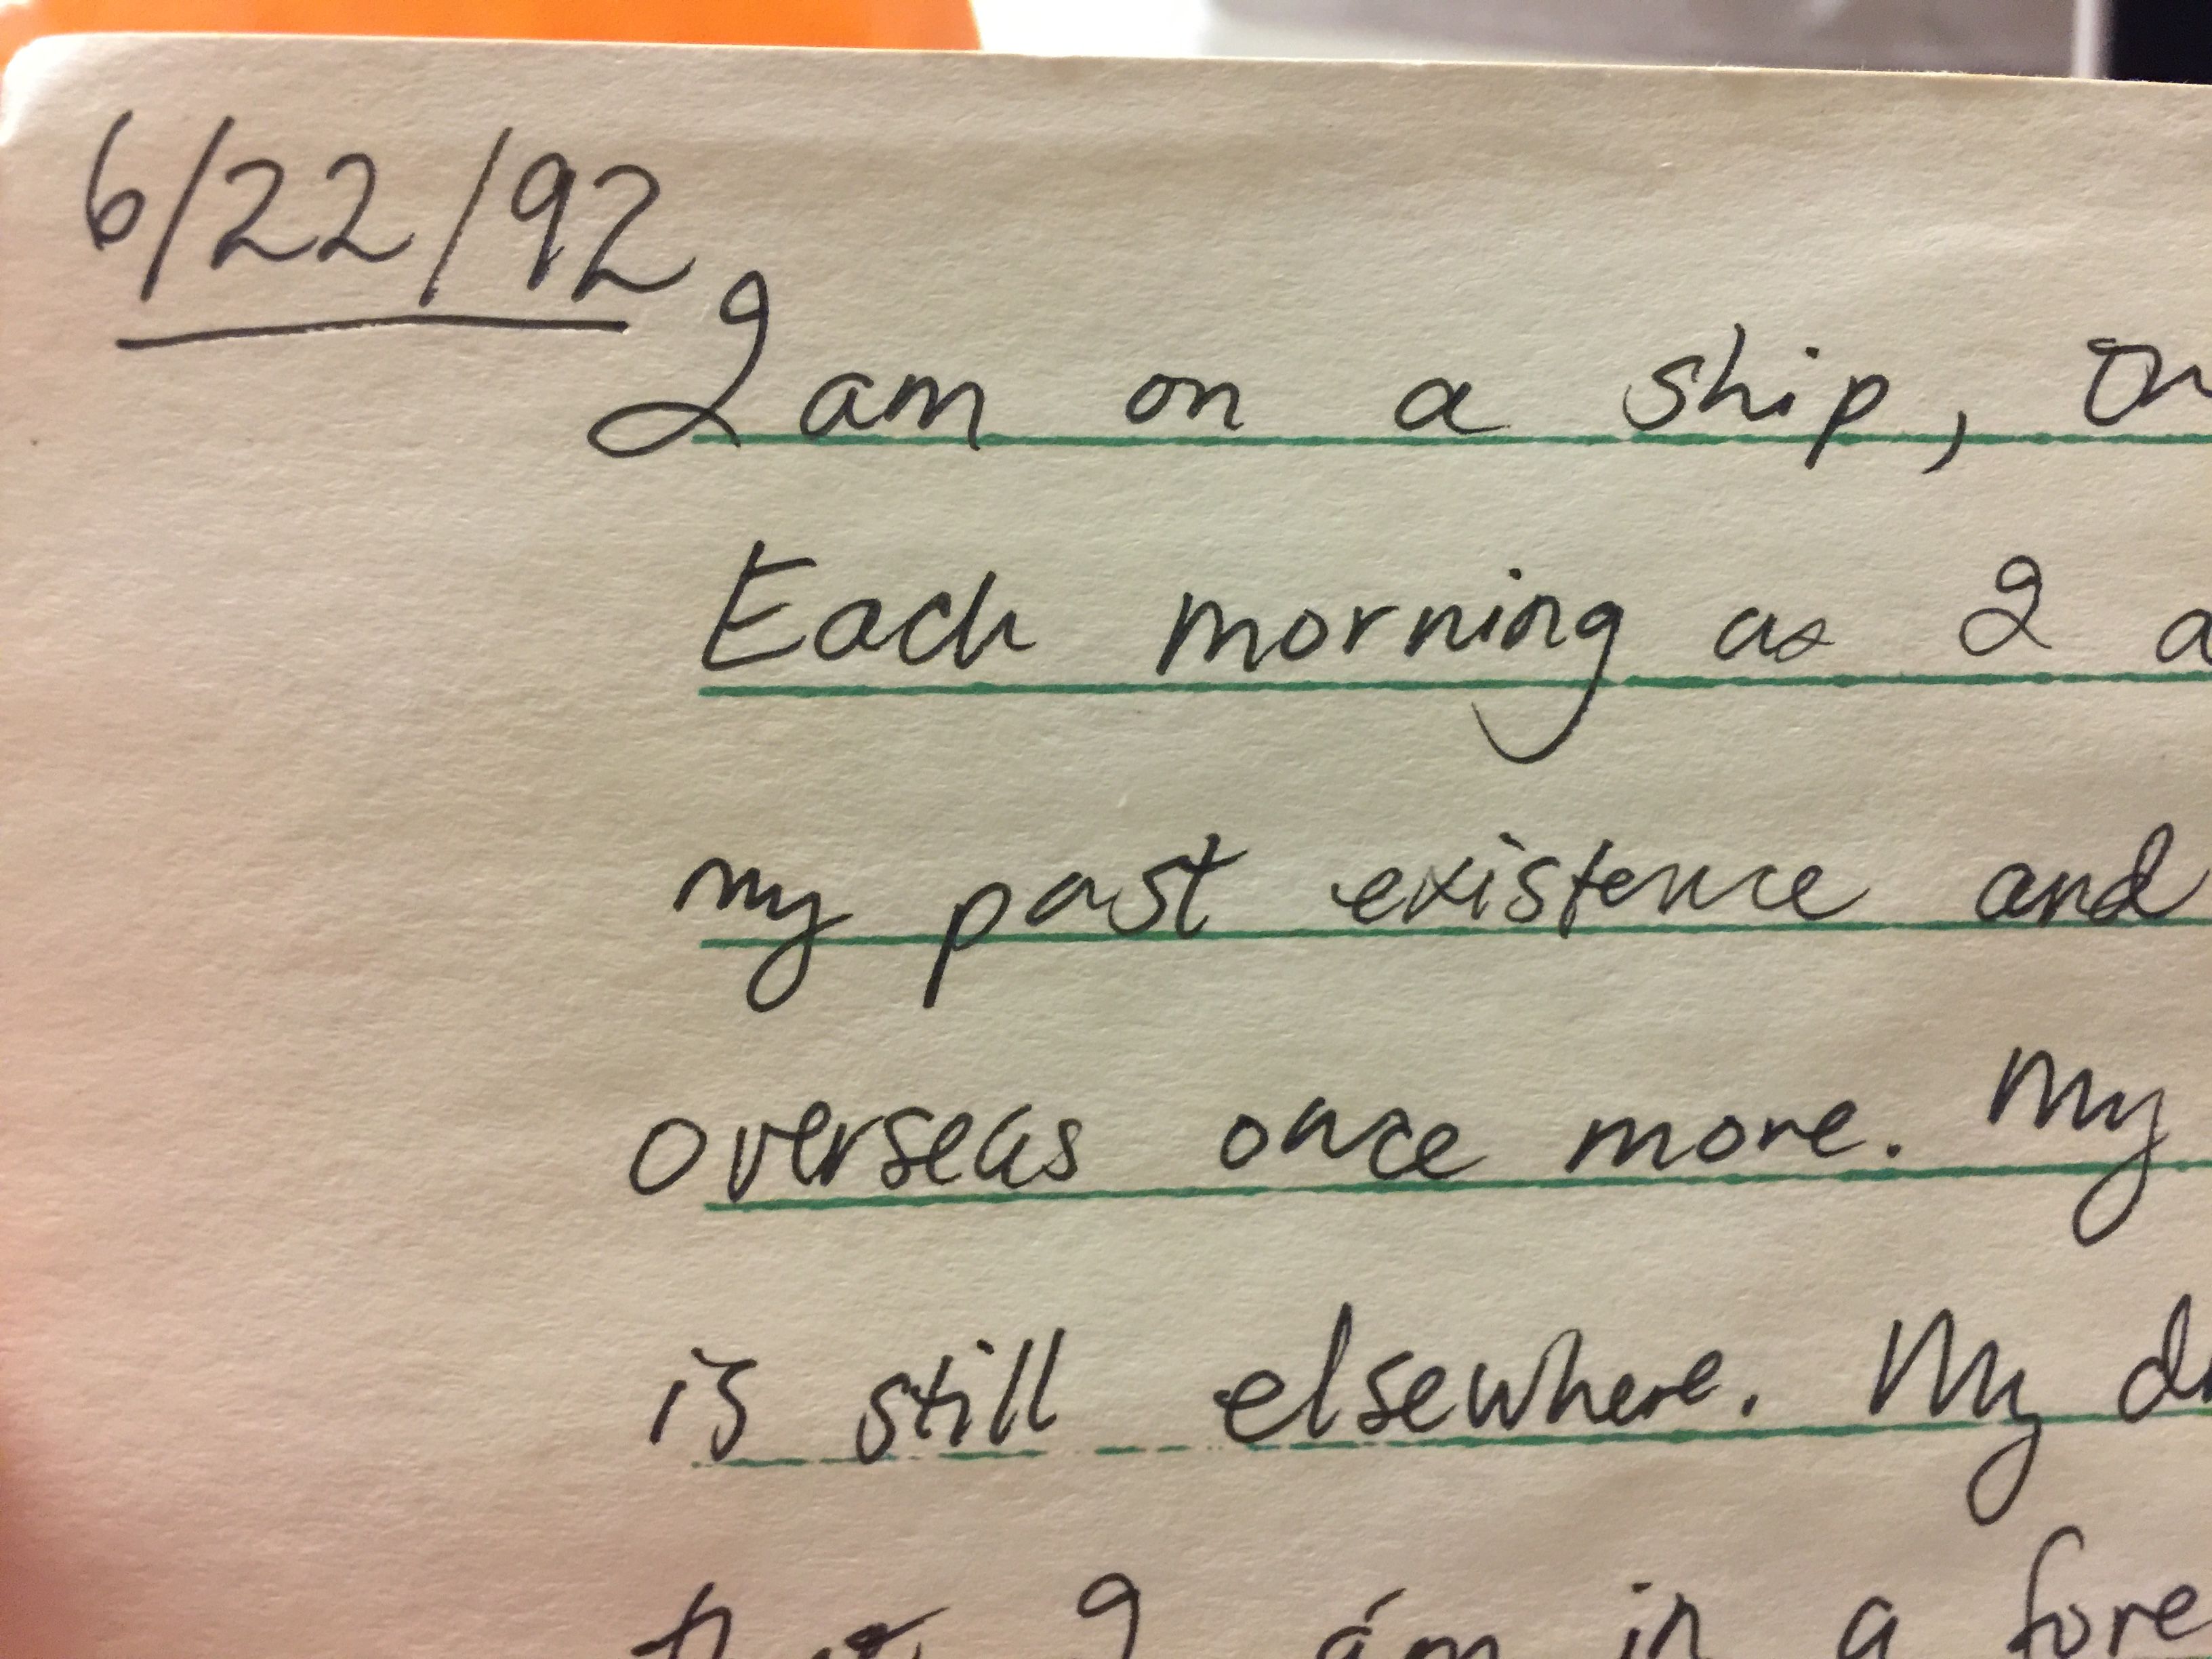 6/22/92
I am on a ship, on
Each morning as I a
my past existence and
overseas once more. My
is still elsewhere. My d
that I am in a fore